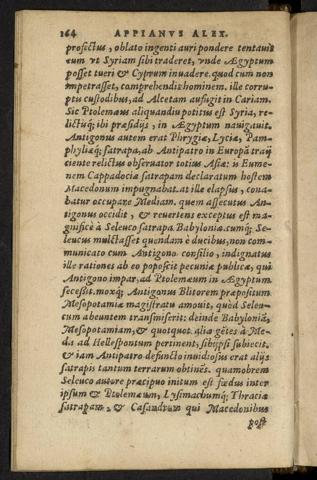 164 APPIANVS ALEX.
profectus, oblato ingenti auri pondere tentauit
eum vt Syriam sibi traderet, vnde Ægyptum
posset tueri & Cyprum inuadere. quod cum non
impetrasset, comprehendit hominem. ille corru-
ptis custodibus, ad Alcetam aufugit in Cariam.
Sic Ptolemæus aliquandiu potitus est Syria, re-
lictisq; ibi præsidijs, in Ægyptum nauigauit.
Antigonus autem erat Phrygiæ, Lyciæ, Pam-
phyliæq; satrapa, ab Antipatro in Europã traij
ciente relictus obseruator totius Asiæ: is Eume-
nem Cappadociæ satrapam declaratum hostem
Macedonum impugnabat. at ille elapsus, cona-
batur occupare Mediam. quem assecutus An-
tigonus occidit, & reuertens exceptus est ma-
gnificè à Seleuco satrapa Babyloniæ. cumq; Se-
leucus mulctasset quendam è ducibus, non com-
municato cum Antigono consilio, indignatus
ille rationes ab eo poposcit pecuniæ publicæ, qui
Antigono impar, ad Ptolemæum in Ægyptum
secessit. moxq; Antigonus Blitorem præpositum
Mesopotamiæ magistratu amouit, quòd Seleu-
cum abeuntem transmiserit: deinde Babyloniã,
Mesopotamiam, & quotquot aliæ gẽtes à Me-
dia ad Hellespontum pertinent, sibijpsi subiecit.
& iam Antipatro defuncto inuidiosus erat alijs
satrapis tantum terrarum obtinẽs. quamobrem
Seleuco autore præcipuo initum est fœdus inter
ipsum & Ptolemæum, Lysimachumq; Thraciæ
satrapam, & Casandrum qui Macedonibus
post